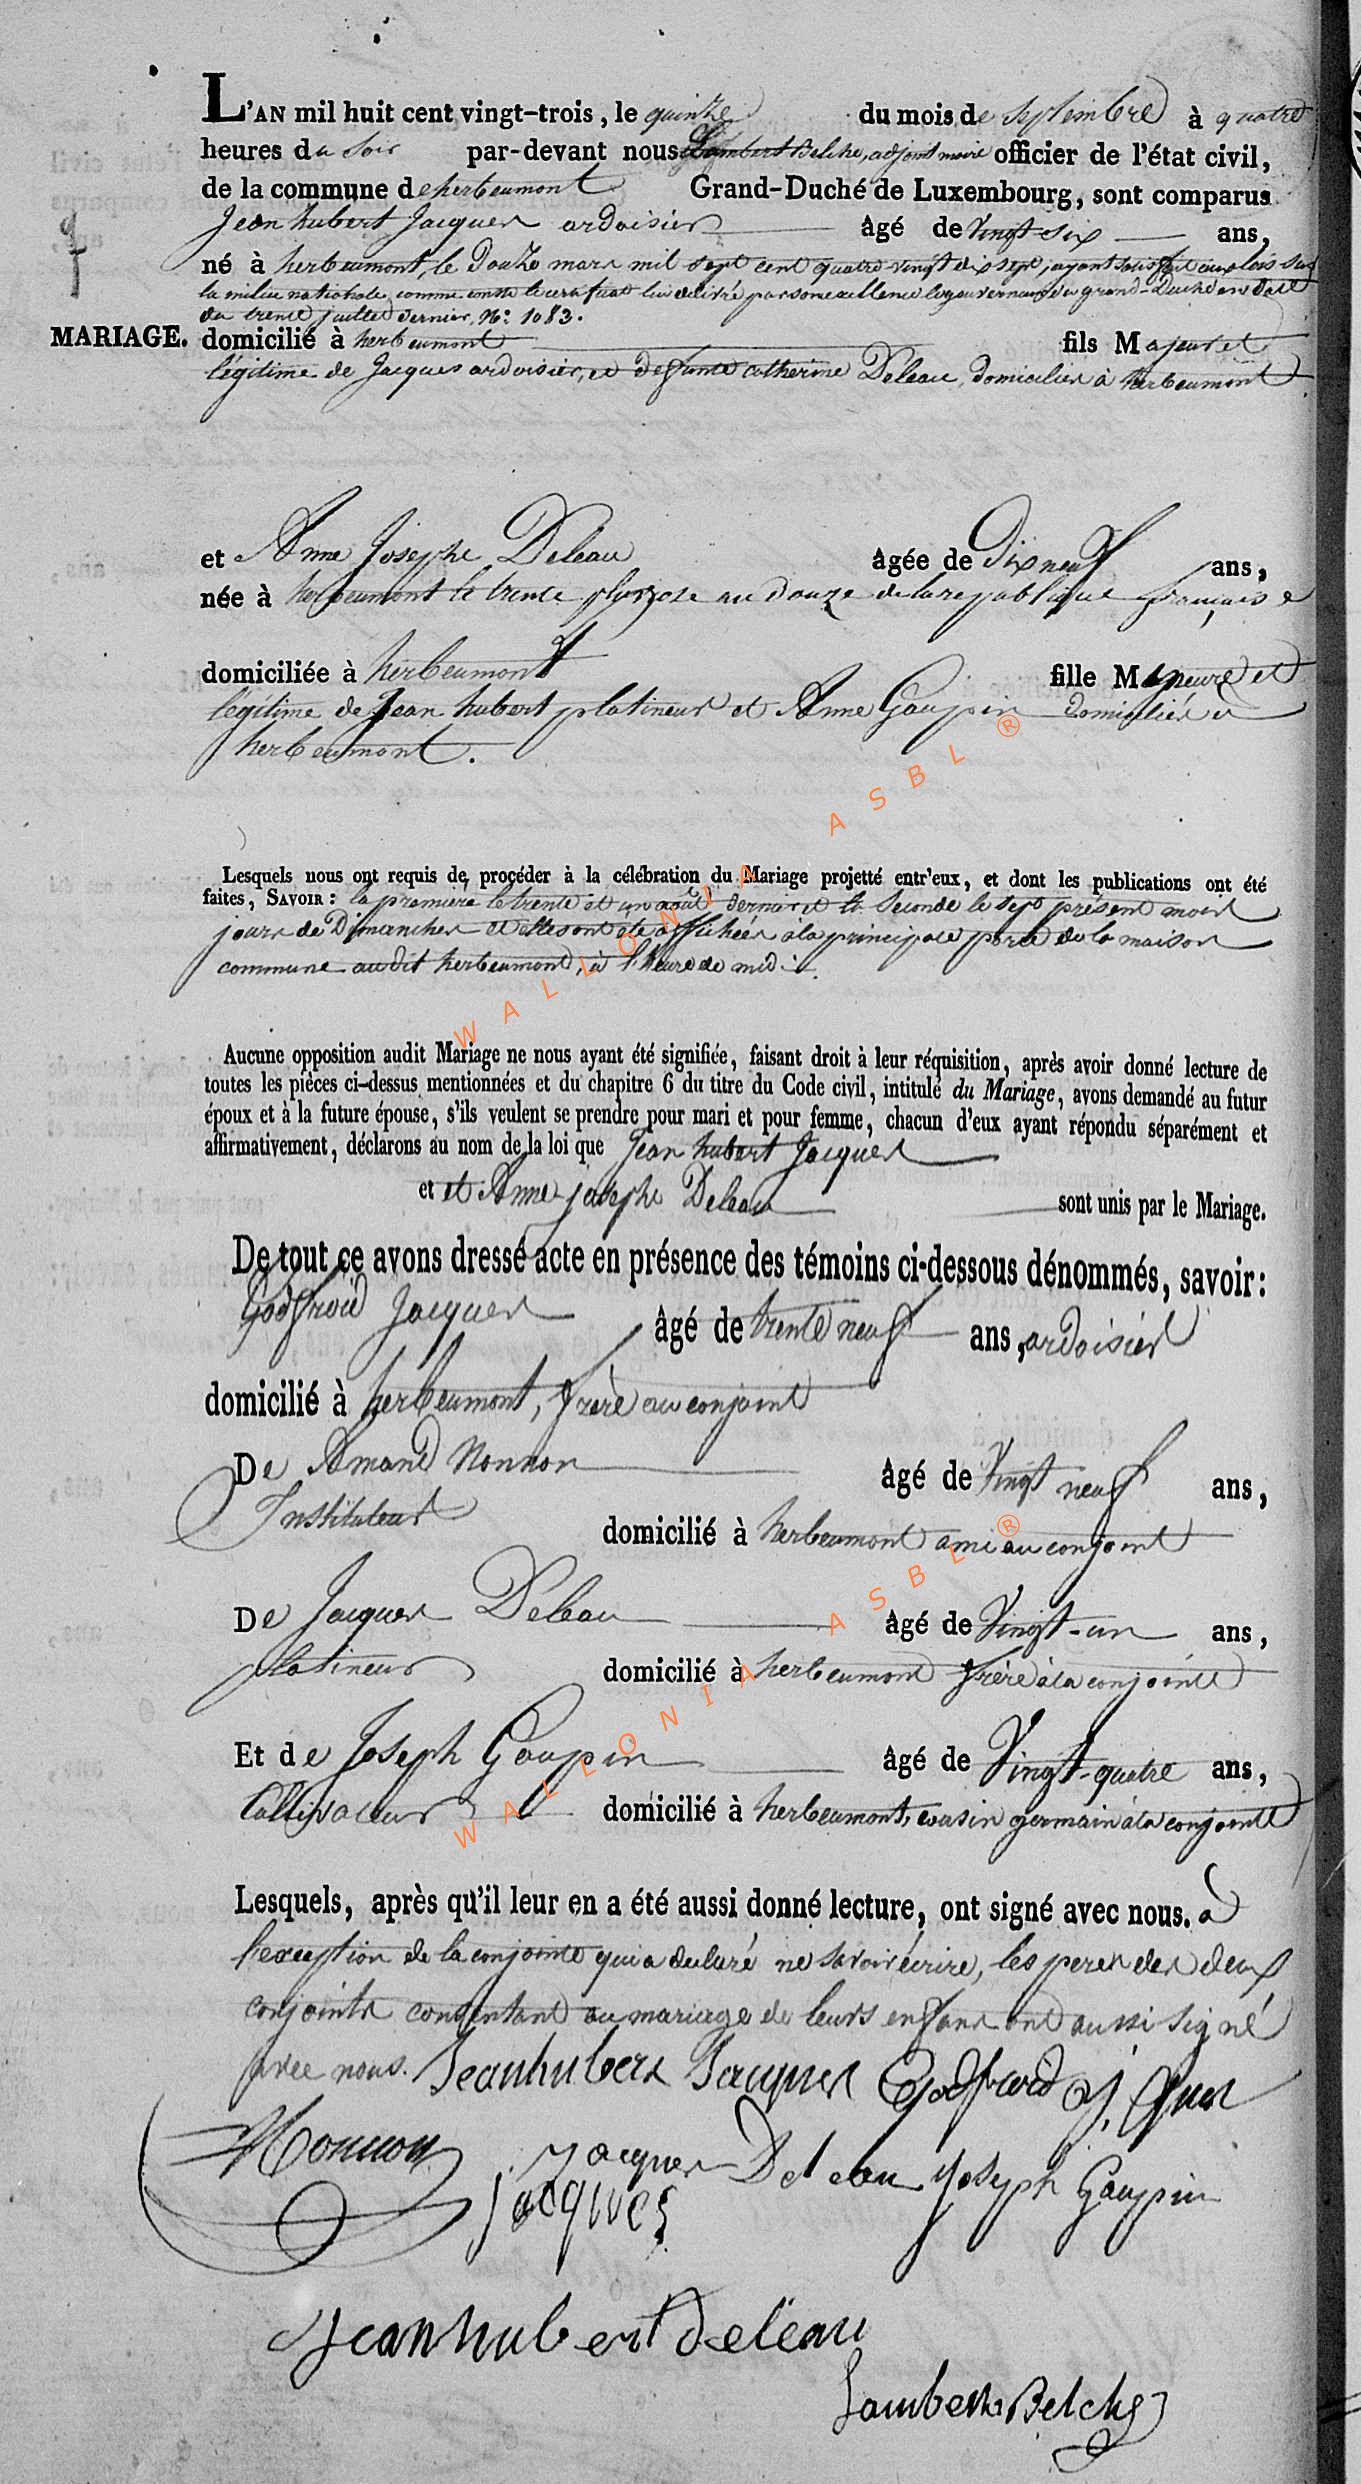 L'AN mil huit cent vingt-trois, le quinze du mois de Septembre à quatre
heures du soir par-devant nous Lambert Belche, adjoint maire officier de l'état civil,
de la commune de herbeumont Grand-Duché de Luxembourg, sont comparus
Jean hubert Jacques ardoisier âgé de vingt six ans,
né à herbeumont, le douze mars mil sept cent quatre vingt dix sept, ayant satisfait aux lois sur
la milice nationale, comme conste le certificat lui délivré par son excellence le gouverneur du grand-Duché en date
du trente juillet dernier, N.º 1083.
MARIAGE. domicilié à herbeumont fils Majeur et
légitime de Jacques ardoisier, et défunte catherine Deleau, domiciliés à herbeumont
et Anne Josephe Deleau âgée de Dix neuf ans,
née à herbeumont le trente pluviose an douze de la republique française
domiciliée à herbeumont fille Mineure et
légitime de Jean hubert platineur et Anne Goupin domiciliés à
herbeumont.
Lesquels nous ont requis de procéder à la célébration du Mariage projetté entr'eux, et dont les publications ont été
faites, SAVOIR : la première le trente et un août dernier et la seconde le sept présent mois
jours de Dimanches et elles ont été affichées à la principale porte de la maison
commune audit herbeumont, à l'heure de midi.
Aucune opposition audit Mariage ne nous ayant été signifiée, faisant droit à leur réquisition, après avoir donné lecture de
toutes les pièces ci-dessus mentionnées et du chapitre 6 du titre du Code civil, intitulé du Mariage, avons demandé au futur
époux et à la future épouse, s'ils veulent se prendre pour mari et pour femme, chacun d'eux ayant répondu séparément et
affirmativement, déclarons au nom de la loi que Jean hubert Jacques
et et Anne josephe Deleau sont unis par le Mariage.
De tout ce avons dressé acte en présence des témoins ci-dessous dénommés, savoir:
Godfroid Jacques âgé de trente neuf ans, ardoisier
domicilié à herbeumont, frère au conjoint
De Amand Nonnon âgé de Vingt neuf ans,
Instituteur domicilié à herbeumont ami au conjoint
De Jacques Deleau âgé de Vingt-un ans,
platineur domicilié à herbeumont frère à la conjointe
Et de Joseph Goupin âgé de Vingt-quatre ans,
Cultivateur domicilié à herbeumont, cousin germain à la conjointe
Lesquels, après qu'il leur en a été aussi donné lecture, ont signé avec nous. à
l'exception de la conjointe qui a declaré ne savoir écrire, les peres des deux
conjoints consentant au mariage de leurs enfans ont aussi signé
avec nous. Jeanhubert Jacques Godfroid Jacques
Nonnon Jacques Deleau Joseph Goupin
jacques
Jeanhubert deleau
Lambert Belche
WALLONIA ASBL ®
WALLONIA ASBL ®